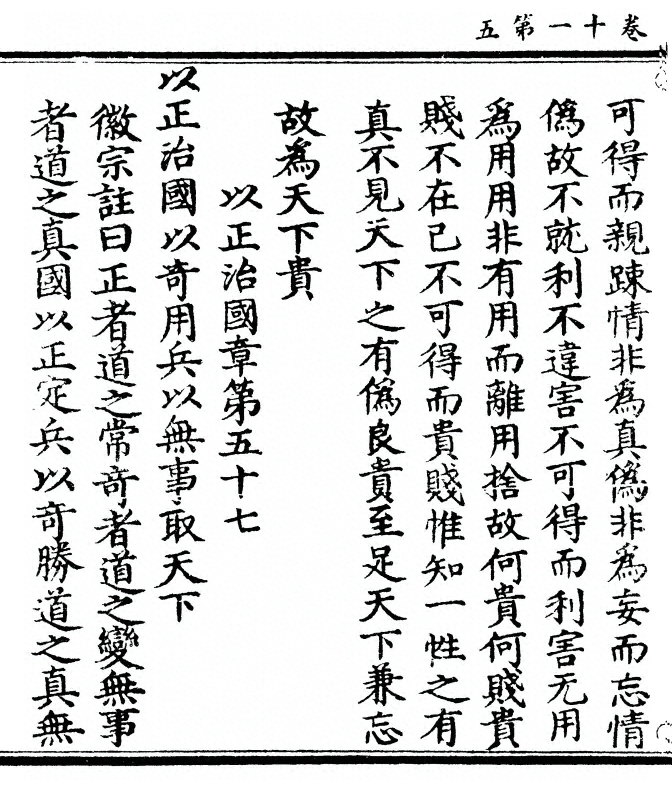 卷十一第五
可得而親踈情非為真偽非為妄而忘情
偽故不就利不違害不可得而利害无用
為用用非有用而離用捨故何貴何賤貴
賤不在己不可得而貴賤惟知一性之有
真不見天下之有偽良貴至足天下兼忘
故為天下貴
以正治國章第五十七
以正治國以奇用兵以無事取天下
徽宗註曰正者道之常奇者道之變無事
者道之真國以正定兵以奇勝道之真無